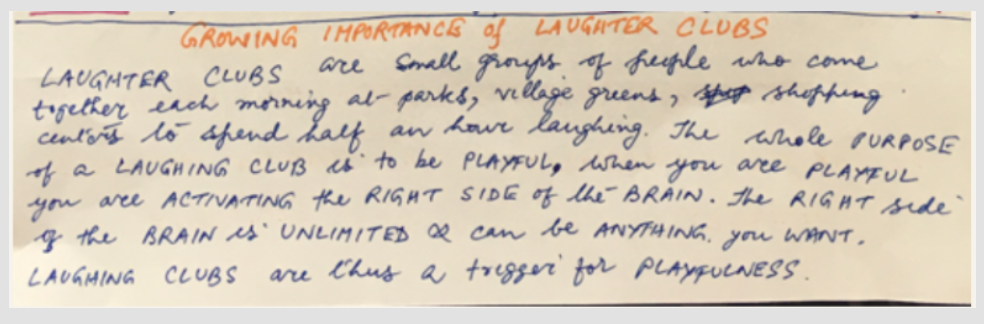 GROWING IMPORTANCE of LAUGHTER CLUBS
LAUGHTER CLUBS are small groups of people who come
together each morning at parks, village greens, shopping
centers to spend half an hour laughing. The whole PURPOSE
of a LAUGHING CLUB is to be PLAYFUL, when you are PLAYFUL
you are ACTIVATING the RIGHT SIDE of the BRAIN. The RIGHT side
of the BRAIN is UNLIMITED & can be ANYTHING you WANT.
LAUGHING CLUBS are thus a trigger for PLAYFULNESS.